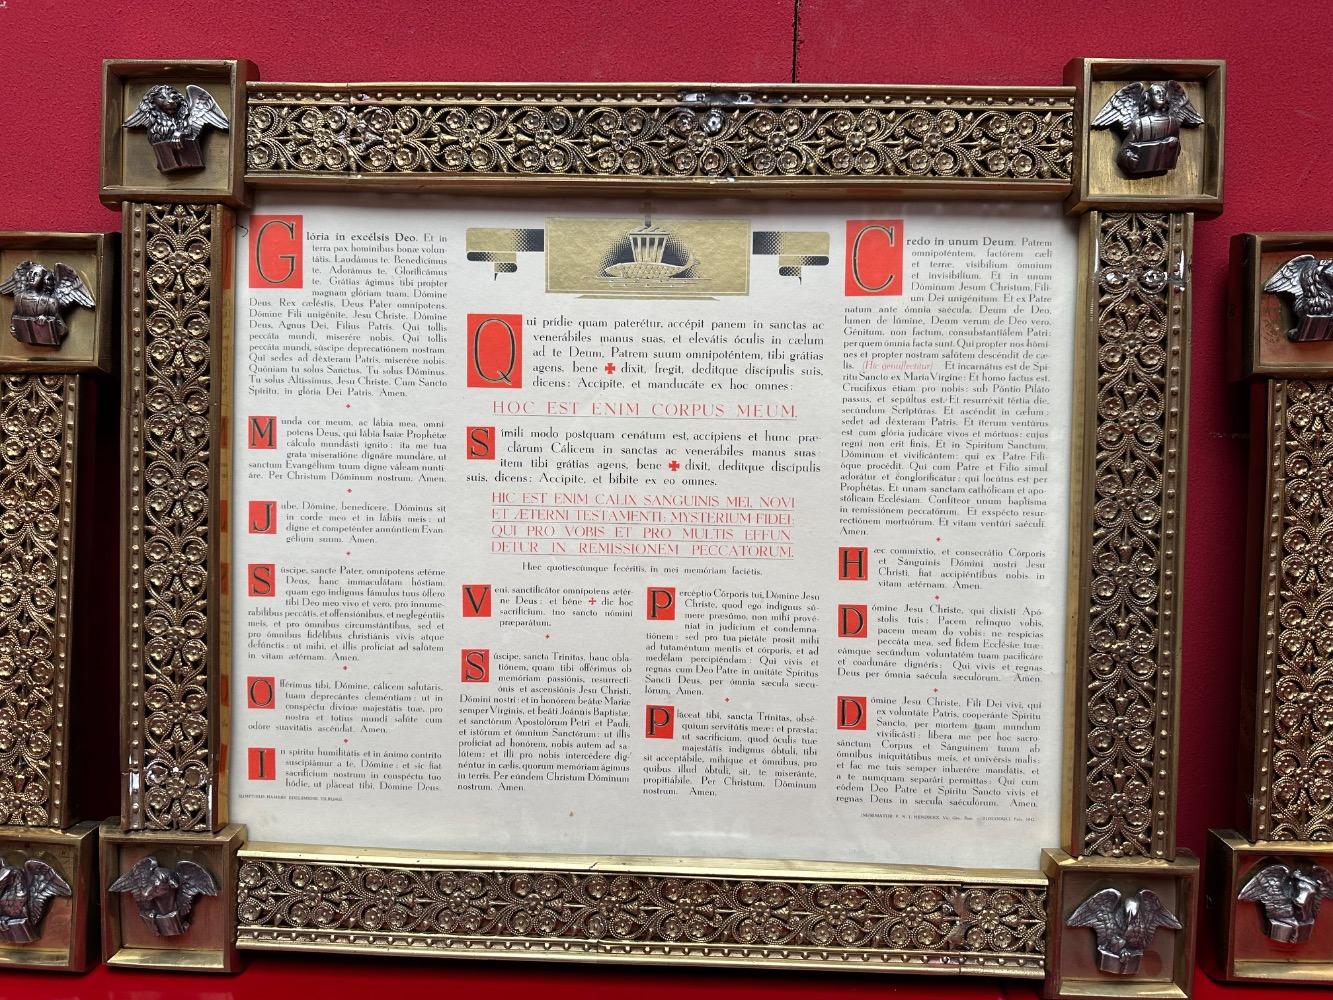 Glória in excélsis Deo. Et in
terra pax hominibus bonæ volun-
tátis. Laudámus te. Benedicimus
te. Adorámus te. Glorificámus
te. Grátias ágimus tibi propter
magnam glóriam tuam. Dómine
Deus, Rex cæléstis, Deus Pater omnipotens.
Dómine Fili unigénite, Jesu Christe. Dómine
Deus, Agnus Dei, Filius Patris. Qui tollis
peccáta mundi, miserére nobis. Qui tollis
peccáta mundi, súscipe deprecatiónem nostram.
Qui sedes ad déxteram Patris, miserére nobis.
Quóniam tu solus Sanctus. Tu solus Dóminus.
Tu solus Altíssimus, Jesu Christe. Cum Sancto
Spíritu, in glória Dei Patris. Amen.
Munda cor meum, ac lábia mea, omní-
potens Deus, qui lábia Isaíæ Prophétæ
cálculo mundásti igníto: ita me tua
grata miseratióne dignáre mundáre, ut
sanctum Evangélium tuum digne váleam nuntí-
áre. Per Christum Dóminum nostrum. Amen.
Jube, Dómine, benedícere. Dóminus sit
in corde meo et in lábiis meis: ut
digne et competénter annúntiem Evan-
gélium suum. Amen.
Súscipe, sancte Pater, omnípotens ætérne
Deus, hanc immaculátam hóstiam,
quam ego indígnus fámulus tuus óffero
tibi Deo meo vivo et vero, pro innume-
rabílibus peccátis, et offensiónibus, et neglegéntiis
meis, et pro ómnibus circumstántibus, sed et
pro ómnibus fidélibus christiánis vivis atque
defúnctis: ut mihi, et illis profíciat ad salútem
in vitam ætérnam. Amen.
Offérimus tibi, Dómine, cálicem salutáris,
tuam deprecántes cleméntiam: ut in
conspéctu divínæ majestátis tuæ, pro
nostra et totíus mundi salúte cum
odóre suavitátis ascéndat. Amen.
In spíritu humilitátis et in ánimo contríto
suscipiámur a te, Dómine: et sic fiat
sacrifícium nostrum in conspéctu tuo
hódie, ut pláceat tibi, Dómine Deus.
Qui prídie quam paterétur, accépit panem in sanctas ac
venerábiles manus suas, et elevátis óculis in cælum
ad te Deum, Patrem suum omnipoténtem, tibi grátias
agens, bene ✚ díxit, fregit, dedítque discípulis suis,
dicens: Accípite, et manducáte ex hoc omnes:
HOC EST ENIM CORPUS MEUM.
Símili modo postquam cenátum est, accípiens et hunc præ-
clárum Cálicem in sanctas ac venerábiles manus suas:
item tibi grátias agens, bene ✚ díxit, dedítque discípulis
suis, dicens: Accípite, et bíbite ex eo omnes.
HIC EST ENIM CALIX SANGUINIS MEI, NOVI
ET ÆTERNI TESTAMENTI: MYSTERIUM FIDEI:
QUI PRO VOBIS ET PRO MULTIS EFFUN
DETUR IN REMISSIONEM PECCATORUM.
Hæc quotiescúmque fecéritis, in mei memóriam faciétis.
Veni, sanctificátor omnípotens ætér-
ne Deus: et béne ✚ dic hoc
sacrifícium, tuo sancto nómini
præparátum.
Súscipe, sancta Trínitas, hanc obla-
tiónem, quam tibi offérimus ob
memóriam passiónis, resurrecti-
ónis et ascensiónis Jesu Christi,
Dómini nostri: et in honórem beátæ Maríæ
semper Vírginis, et beáti Joánnis Baptístæ,
et sanctórum Apostolórum Petri et Pauli,
et istórum et ómnium Sanctórum: ut illis
profíciat ad honórem, nobis autem ad sa-
lútem: et illi pro nobis intercédere dig-
néntur in cælis, quorum memóriam ágimus
in terris. Per eúndem Christum Dóminum
nostrum. Amen.
Percéptio Córporis tui, Dómine Jesu
Christe, quod ego indígnus sú-
mere præsúmo, non mihi prové-
niat in judícium et condemna-
tiónem: sed pro tua pietáte prosit mihi
ad tutaméntum mentis et córporis, et ad
medélam percipiéndam: Qui vivis et
regnas cum Deo Patre in unitáte Spíritus
Sancti Deus, per ómnia sǽcula sæcu-
lórum. Amen.
Pláceat tibi, sancta Trínitas, obsé-
quium servitútis meæ: et præsta;
ut sacrifícium, quod óculis tuæ
majestátis indígnus óbtuli, tibi
sit acceptábile, mihíque et ómnibus, pro
quibus illud óbtuli, sit, te miseránte,
propitiábile. Per Christum, Dóminum
nostrum. Amen.
Credo in unum Deum. Patrem
omnipoténtem, factórem cæli
et terræ, visibílium ómnium
et invisibílium. Et in unum
Dóminum Jesum Christum, Fíli-
um Dei unigénitum. Et ex Patre
natum ante ómnia sǽcula. Deum de Deo,
lumen de lúmine, Deum verum de Deo vero.
Génitum, non factum, consubstantiálem Patri:
per quem ómnia facta sunt. Qui propter nos hómi-
nes et propter nostram salútem descéndit de cæ-
lis. (Hic genuflectitur) Et incarnátus est de Spí-
ritu Sancto ex María Vírgine: Et homo factus est.
Crucifíxus étiam pro nobis: sub Póntio Piláto
passus, et sepúltus est. Et resurréxit tértia die,
secúndum Scriptúras. Et ascéndit in cælum:
sedet ad déxteram Patris. Et íterum ventúrus
est cum glória judicáre vivos et mórtuos: cujus
regni non erit finis. Et in Spíritum Sanctum,
Dóminum et vivificántem: qui ex Patre Filí-
óque procédit. Qui cum Patre et Fílio simul
adorátur et conglorificátur: qui locútus est per
Prophétas. Et unam sanctam cathólicam et apo-
stólicam Ecclésiam. Confíteor unum baptísma
in remissiónem peccatórum. Et exspécto resur-
rectiónem mortuórum. Et vitam ventúri sǽculi.
Amen.
Hæc commíxtio, et consecrátio Córporis
et Sánguinis Dómini nostri Jesu
Christi, fiat accipiéntibus nobis in
vitam ætérnam. Amen.
Dómine Jesu Christe, qui dixísti Apó-
stolis tuis: Pacem relínquo vobis,
pacem meam do vobis: ne respícias
peccáta mea, sed fidem Ecclésiæ tuæ:
eámque secúndum voluntátem tuam pacificáre
et coadunáre dignéris: Qui vivis et regnas
Deus per ómnia sǽcula sæculórum. Amen.
Dómine Jesu Christe, Fili Dei vivi, qui
ex voluntáte Patris, cooperánte Spíritu
Sancto, per mortem tuam mundum
vivificásti: líbera me per hoc sacro-
sánctum Corpus et Sánguinem tuum ab
ómnibus iniquitátibus meis, et univérsis malis:
et fac me tuis semper inhærére mandátis, et
a te numquam separári permíttas: Qui cum
eódem Deo Patre et Spíritu Sancto vivis et
regnas Deus in sǽcula sæculórum. Amen.